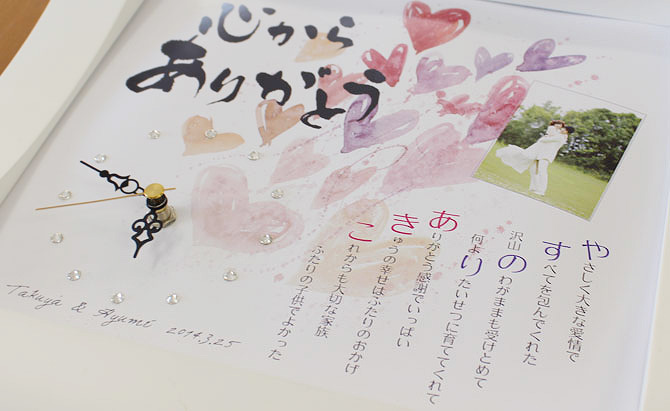 心から
ありがとう
やさしく大きな愛情で
すべてを包んでくれた
沢山のわがままも受けとめて
何よりたいせつに育ててくれて
ありがとう感謝でいっぱい
きゅうの幸せはふたりのおかげ
これからも大切な家族
ふたりの子供でよかった
Takuya & Ayumi 2014.3.25